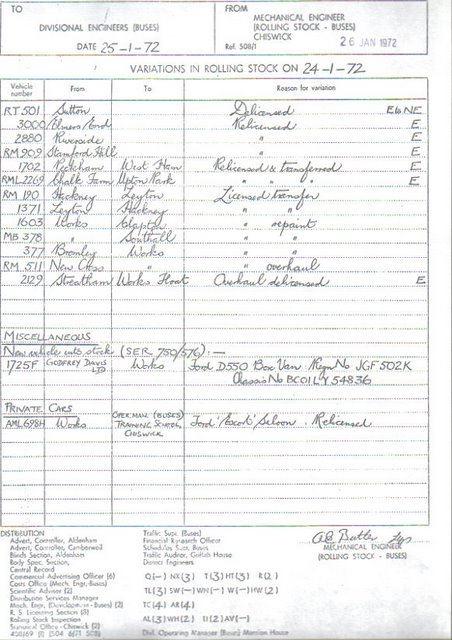 TO
DIVISIONAL ENGINEERS (BUSES)
DATE 25-1-72
FROM
MECHANICAL ENGINEER
(ROLLING STOCK - BUSES)
CHISWICK
Ref. 508/1
26 JAN 1972
VARIATIONS IN ROLLING STOCK ON 24-1-72
Vehicle number From To Reason for variation
RT 501 Sutton Delicensed E to NE
3000 Elmers End Relicensed E
2880 Riverside " E
RM 909 Stamford Hill " E
1702 Peckham West Ham Relicensed & transferred E
RML 2269 Chalk Farm Upton Park " " " E
RM 190 Hackney Leyton Licensed transfer
1371 Leyton Hackney " "
1603 Works Clapton " repaint
MB 378 " Southall " "
377 Bromley Works " "
RM 511 New Cross " " overhaul
2129 Streatham Works Float Overhaul delicensed E
MISCELLANEOUS
New vehicle into stock (SER. 750/576) :—
1725F GODFREY DAVIS LTD Works Ford D550 Box Van Regn No JGF 502K
Chassis No BC01LY 54836
PRIVATE CARS
AML 698H Works OPER. MAN. (BUSES) TRAINING SCHOOL, CHISWICK Ford 'Escort' Saloon. Relicensed
DISTRIBUTION
Advert, Controller, Aldenham
Advert, Controller, Camberwell
Blinds Section, Aldenham
Body Spec. Section,
Central Record
Commercial Advertising Officer (6)
Costs Office (Mech. Engr. Buses)
Scientific Adviser (2)
Distribution Services Manager
Mech. Engr. (Development - Buses) (2)
R. S. Licensing Section (3)
Rolling Stock Inspection
Statistical Office - Chiswick (2)
Traffic Supt. (Buses)
Financial Research Officer
Schedules Supt. Buses
Traffic Auditor, Griffith House
District Engineers
Q(-) NX(3) T(3) HT(3) R(2)
TL(3) SW(-) WN(-) W(-) HW(2)
TC(4) AR(4)
AL(3) WH(2) U(2) AV(-)
Divl. Operating Manager (Buses) Mansion House
MECHANICAL ENGINEER
(ROLLING STOCK - BUSES)